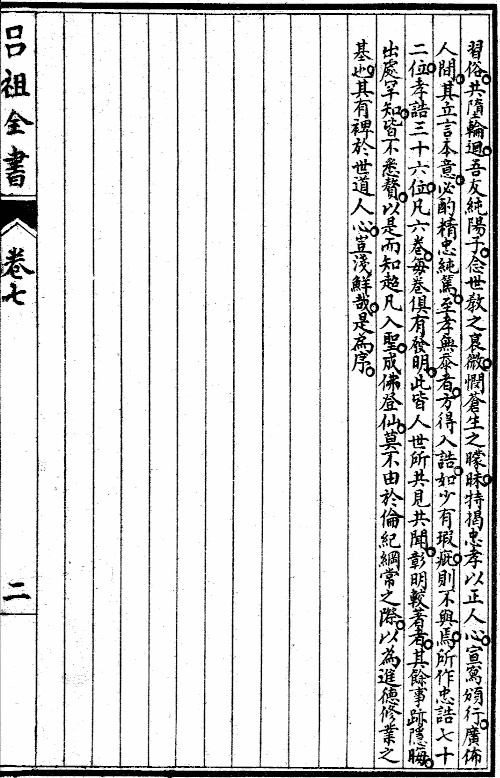 習俗共墮輪迴吾友純陽子念世敎之衰微憫蒼生之矇昧特揭忠孝以正人心宣寫頒行廣佈
人間其立言本意必酌精忠純篤至孝無忝者方得入誥如少有瑕疵則不與焉所作忠誥七十
二位孝誥三十六位凡六卷每卷俱有發明此皆人世所共見共聞彰明較著者其餘事跡隱晦
出處罕知皆不悉贅以是而知超凡入聖成佛登仙莫不由於倫紀綱常之際以為進德修業之
基也其有裨於世道人心豈淺鮮哉是為序
呂祖全書
卷七
二